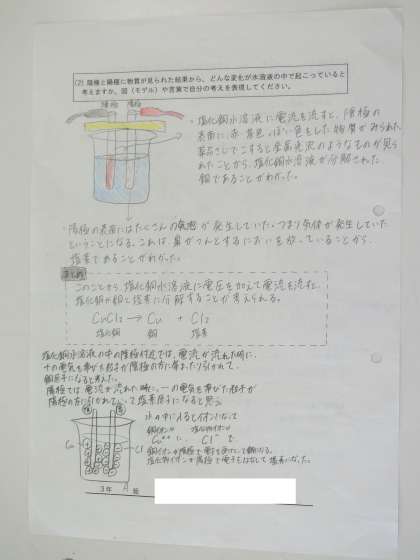 (2) 陰極と陽極に物質が見られた結果から、どんな変化が水溶液の中で起こっていると
考えますか。図(モデル)や言葉で自分の考えを表現してください。
陰極 陽極
・塩化銅水溶液に電流を流すと、陰極の
表面に赤茶色っぽい色をした物質がみられた。
薬さじでこすると金属光沢のようなものが見ら
れたことから、塩化銅水溶液が分解された
銅であることがわかった。
・陽極の表面にはたくさんの気泡が発生していた。つまり気体が発生していた
ということになる。これは鼻がつんとするにおいを放っていることから、
塩素であることがわかった。
まとめ
このことから、塩化銅水溶液に電圧を加えて電流を流すと、
塩化銅が銅と塩素に分解することが考えられる。
CuCl₂ → Cu + Cl₂
塩化銅 銅 塩素
塩化銅水溶液の中の陰極付近では、電流が流れた時に、
+の電気を帯びた粒子が陰極の方に引かれて、
銅原子になると考えた。
陽極では電流が流れた時に、-の電気を帯びた粒子が
陽極の方に引かれていって塩素原子になると思う
水の中に入るとイオンになって
銅イオンが 塩化物イオンが
Cu⁺⁺ に、 Cl⁻ で、
Cu
Cl
銅イオンが陰極で電子を受けとって銅になる。
塩化物イオンが陽極で電子をはなして塩素になった。
3年 A 組